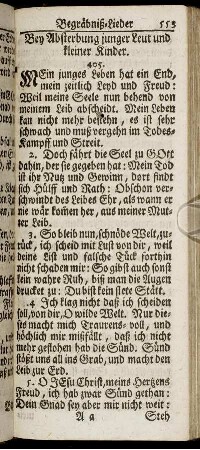 Begräbniß-Lieder 553
Bey Absterbung junger Leut und
kleiner Kinder.
405.
MEin junges Leben hat ein End,
mein zeitlich Leyd und Freud:
Weil meine Seele nun behend von
meinem Leib abscheidt. Mein Leben
kan nicht mehr bestehn, es ist sehr
schwach und muß vergehn im Todes-
Kampff und Streit.
2. Doch fährt die Seel zu GOtt
dahin, der sie gegeben hat: Mein Tod
ist ihr Nutz und Gewinn, dort findt
sich Hülff und Rath: Obschon ver-
schwindt des Leibes Ehr, als wann er
nie wär komen her, aus meiner Mut-
ter Leib.
3. So bleib nun, schnöde Welt, zu-
rück, ich scheid mit Lust von dir, weil
deine List und falsche Tück forthin
nicht schaden mir: So gibst auch sonst
kein wahre Ruh, biß man die Augen
drucket zu: Du bist kein stete Stätt.
4. Ich klag nicht daß ich scheiden
soll, von dir, O wilde Welt. Nur die-
ses macht mich Traurens-voll, und
höchlich mir mißfällt, daß ich nicht
mehr geflohen hab die Sünd. Sünd
stößt uns all ins Grab, und macht den
Leib zur Erd.
5. O JEsu Christ, meins Hertzens
Freud, ich hab zwar Sünd gethan:
Dein Gnad sey aber mir nicht weit:
A a Steh